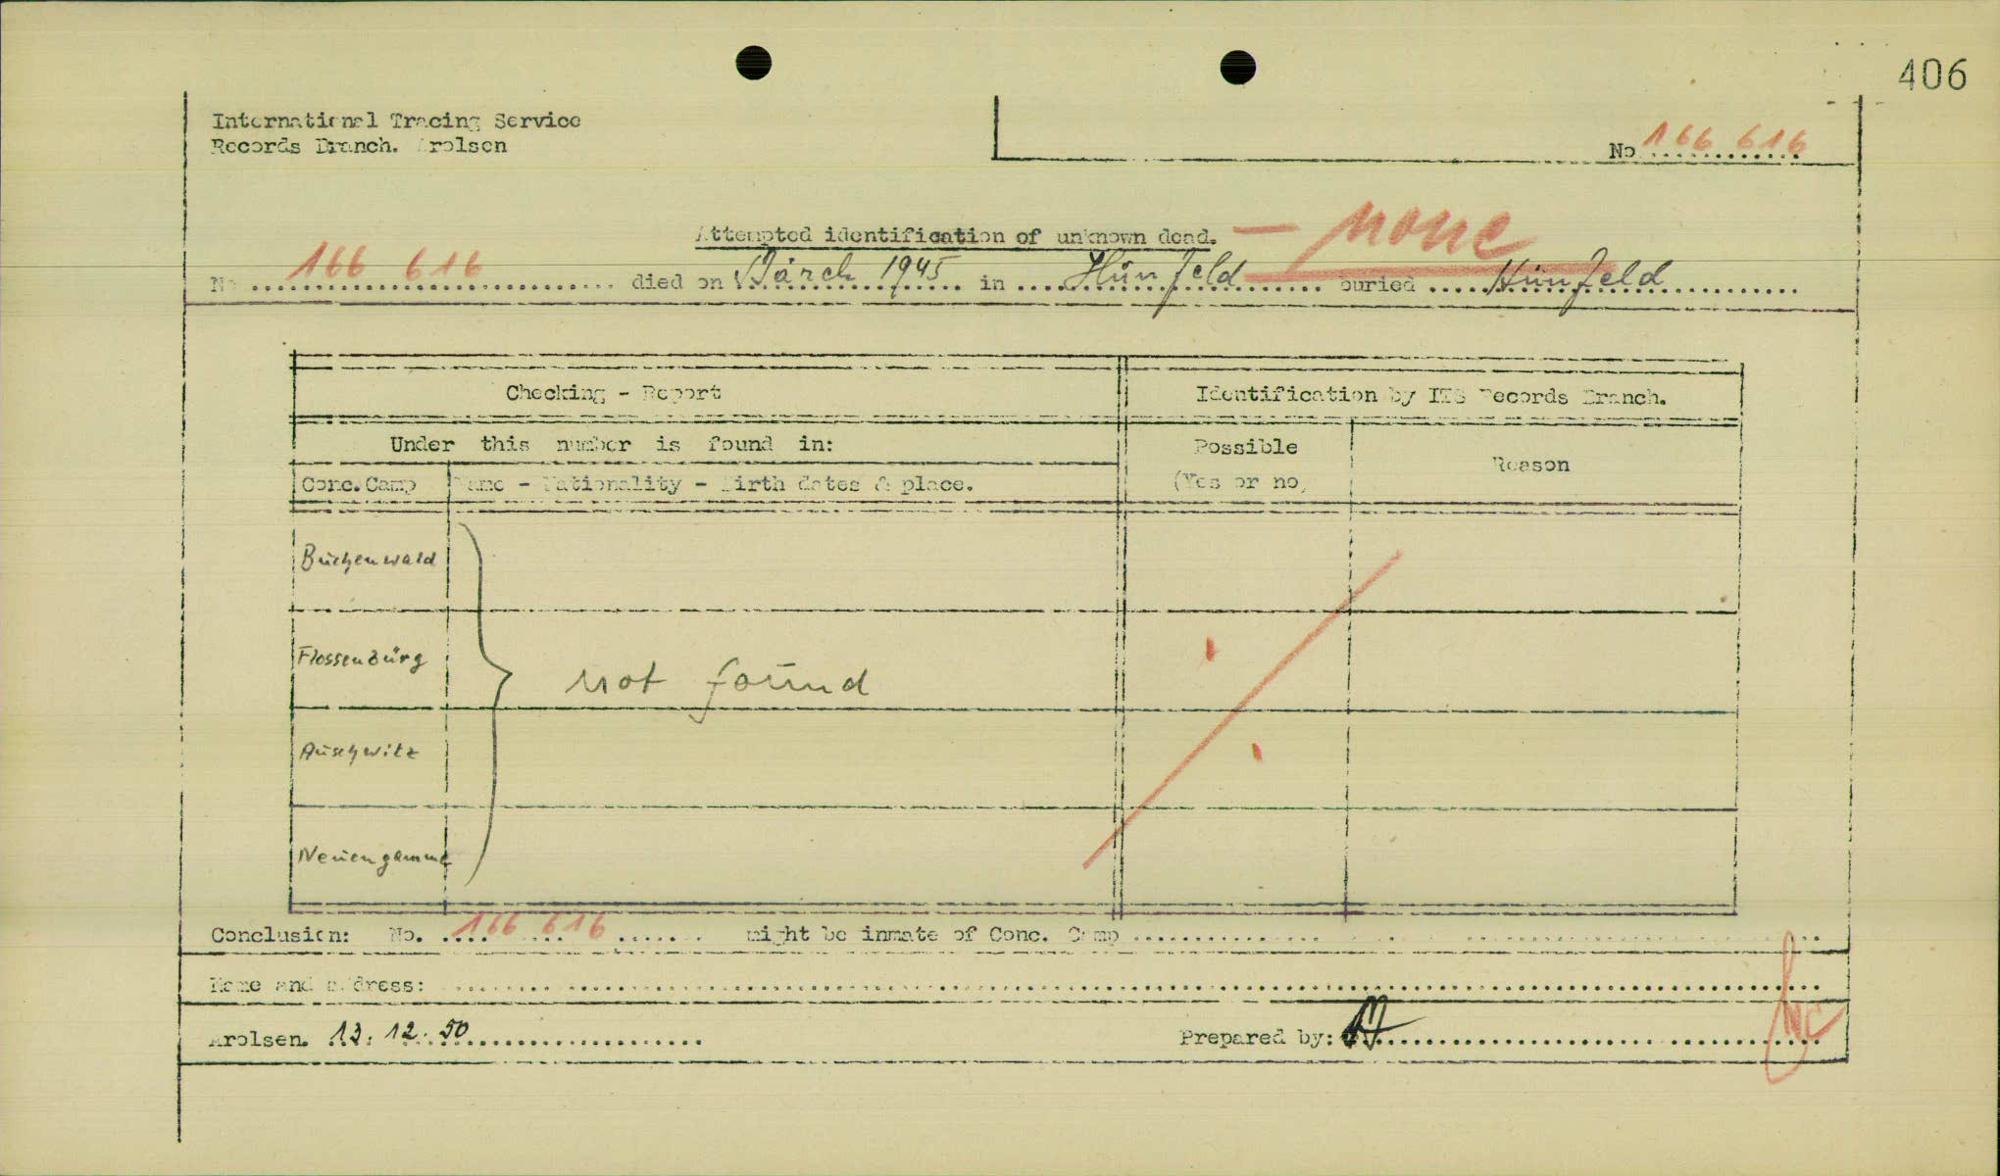 406
International Tracing Service
Records Branch. Arolsen
No. 166 616
Attempted identification of unknown dead. — none
No 166 616 died on March 1945 in Hünfeld buried Hünfeld
Checking - Report
Identification by ITS Records Branch.
Under this number is found in:
Possible
(Yes or no)
Reason
Conc. Camp
Name - Nationality - Birth dates & place.
Buchenwald
Flossenbürg
not found
Auschwitz
Neuengamme
Conclusion: No. 166 616 might be inmate of Conc. Camp
Name and address:
Arolsen. 13. 12. 50 Prepared by: